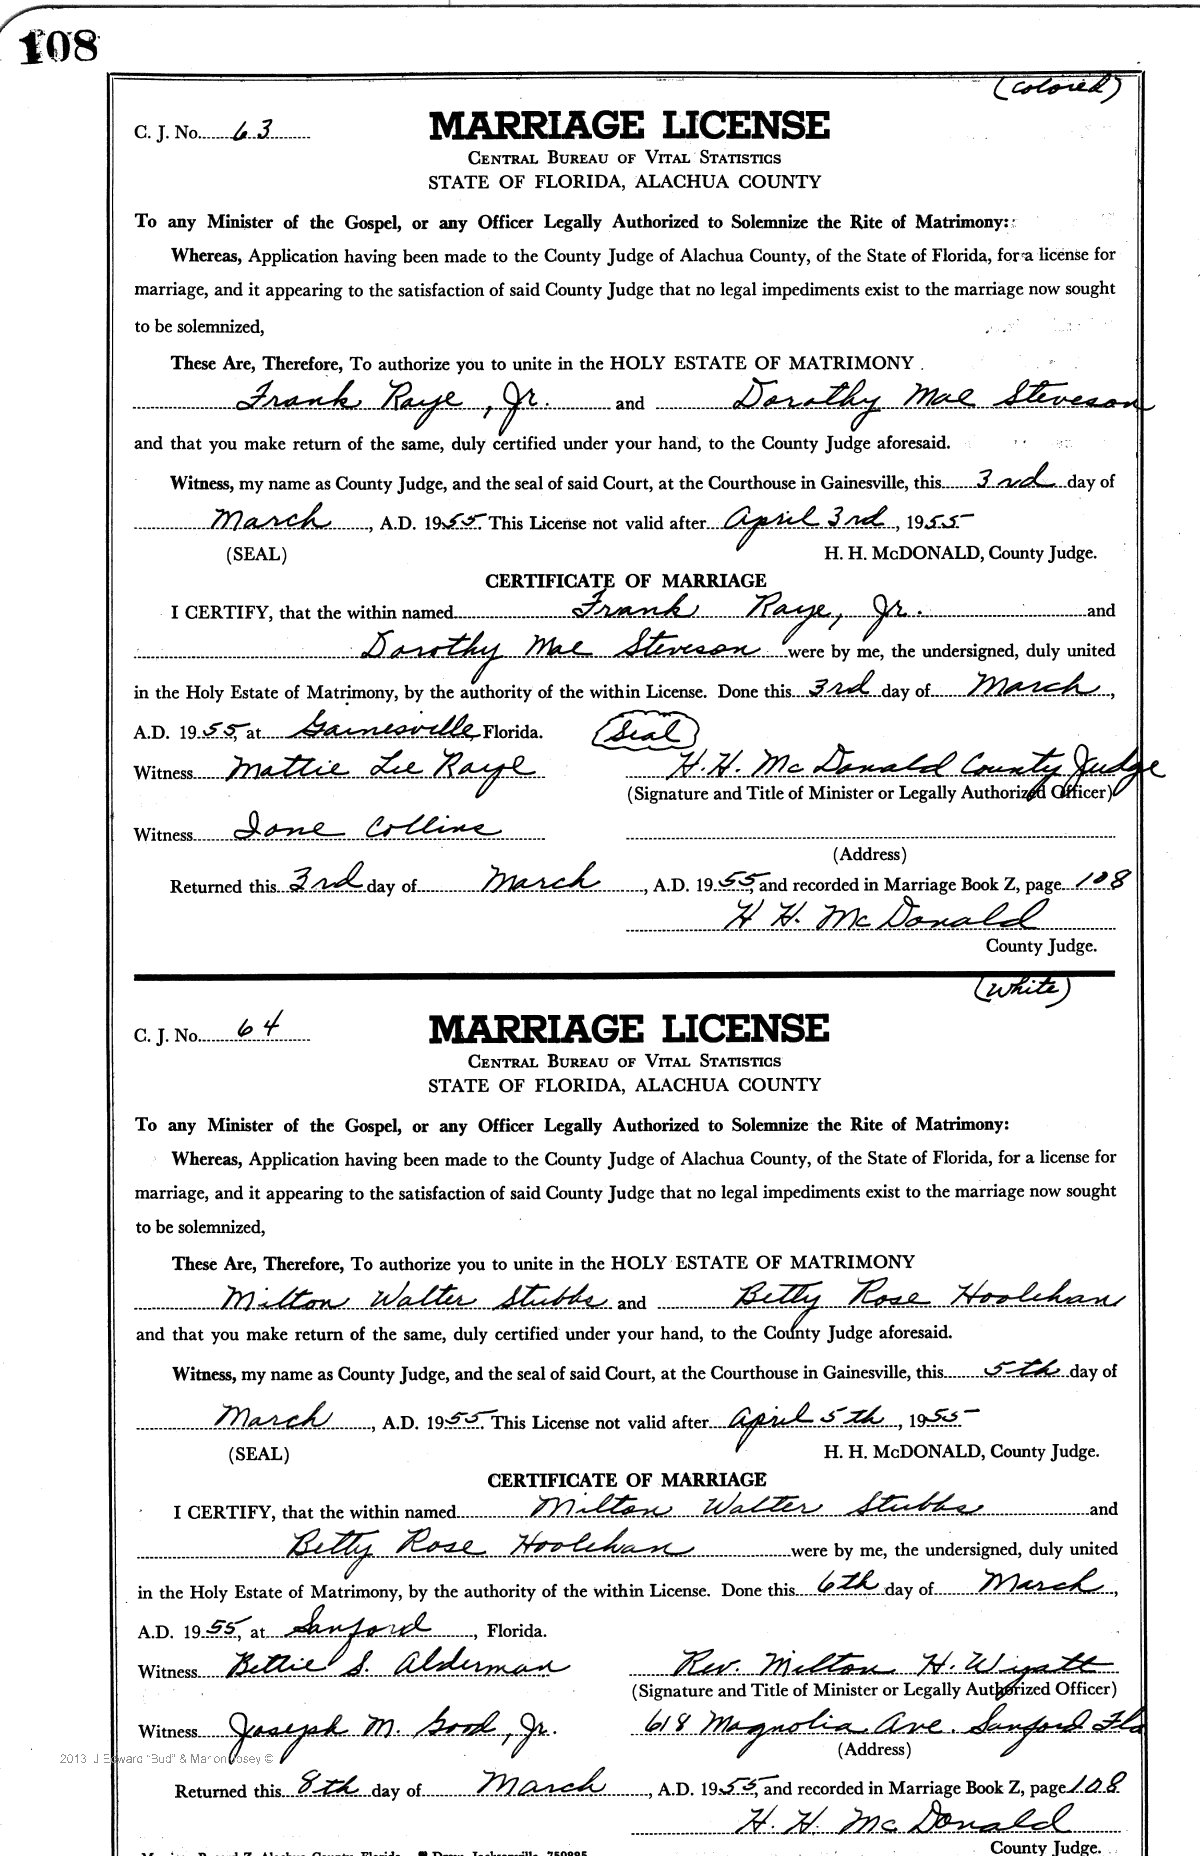 108
(Colored)
C. J. No. 63
MARRIAGE LICENSE
CENTRAL BUREAU OF VITAL STATISTICS
STATE OF FLORIDA, ALACHUA COUNTY
To any Minister of the Gospel, or any Officer Legally Authorized to Solemnize the Rite of Matrimony:
Whereas, Application having been made to the County Judge of Alachua County, of the State of Florida, for a license for
marriage, and it appearing to the satisfaction of said County Judge that no legal impediments exist to the marriage now sought
to be solemnized,
These Are, Therefore, To authorize you to unite in the HOLY ESTATE OF MATRIMONY
Frank Raye, Jr. and Dorothy Mae Steveson
and that you make return of the same, duly certified under your hand, to the County Judge aforesaid.
Witness, my name as County Judge, and the seal of said Court, at the Courthouse in Gainesville, this 3rd day of
March, A.D. 1955. This License not valid after April 3rd, 1955
(SEAL) H. H. McDONALD, County Judge.
CERTIFICATE OF MARRIAGE
I CERTIFY, that the within named Frank Raye, Jr. and
Dorothy Mae Steveson were by me, the undersigned, duly united
in the Holy Estate of Matrimony, by the authority of the within License. Done this 3rd day of March,
A.D. 1955, at Gainesville, Florida. (Seal)
Witness Mattie Lee Raye H. H. McDonald County Judge
(Signature and Title of Minister or Legally Authorized Officer)
Witness Ione Collins
(Address)
Returned this 3rd day of March, A.D. 1955, and recorded in Marriage Book Z, page 108
H H. McDonald
County Judge.
(White)
C. J. No. 64
MARRIAGE LICENSE
CENTRAL BUREAU OF VITAL STATISTICS
STATE OF FLORIDA, ALACHUA COUNTY
To any Minister of the Gospel, or any Officer Legally Authorized to Solemnize the Rite of Matrimony:
Whereas, Application having been made to the County Judge of Alachua County, of the State of Florida, for a license for
marriage, and it appearing to the satisfaction of said County Judge that no legal impediments exist to the marriage now sought
to be solemnized,
These Are, Therefore, To authorize you to unite in the HOLY ESTATE OF MATRIMONY
Milton Walter Stubbs and Betty Rose Hoolehan
and that you make return of the same, duly certified under your hand, to the County Judge aforesaid.
Witness, my name as County Judge, and the seal of said Court, at the Courthouse in Gainesville, this 5th day of
March, A.D. 1955. This License not valid after April 5th, 1955
(SEAL) H. H. McDONALD, County Judge.
CERTIFICATE OF MARRIAGE
I CERTIFY, that the within named Milton Walter Stubbs and
Betty Rose Hoolehan were by me, the undersigned, duly united
in the Holy Estate of Matrimony, by the authority of the within License. Done this 6th day of March,
A.D. 1955, at Sanford, Florida.
Witness Bettie S. Alderman Rev. Milton H. Wyatt
(Signature and Title of Minister or Legally Authorized Officer)
Witness Joseph M. Good, Jr. 618 Magnolia Ave. Sanford Fla
(Address)
2013 J Edward "Bud" & Marion Josey ©
Returned this 8th day of March, A.D. 1955, and recorded in Marriage Book Z, page 108
H. H. McDonald
County Judge.